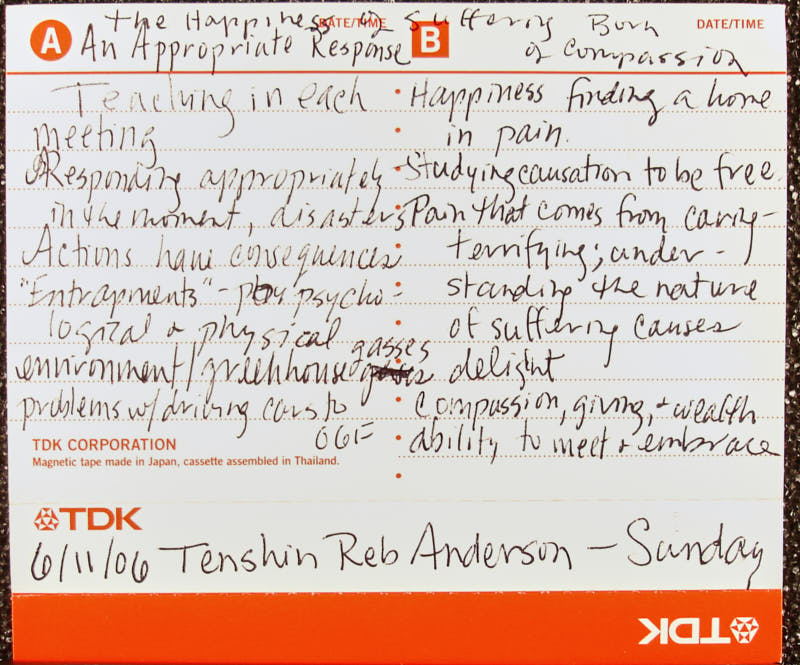 The Happiness of Suffering Born
of Compassion
A DATE/TIME
An Appropriate Response
B DATE/TIME
Teaching in each
meeting
Responding appropriately
in the moment, disasters
Actions have consequences
"Entrapments" - psycho-
logical & physical
environment/greenhouse gasses
problems w/driving cars to
GGF
TDK CORPORATION
Magnetic tape made in Japan, cassette assembled in Thailand.
• Happiness finding a home
in pain.
• Studying causation to be free.
• Pain that comes from caring -
terrifying; under-
standing the nature
of suffering causes
delight
• Compassion, giving, & wealth
• ability to meet & embrace
TDK
6/11/06 Tenshin Reb Anderson - Sunday
TDK